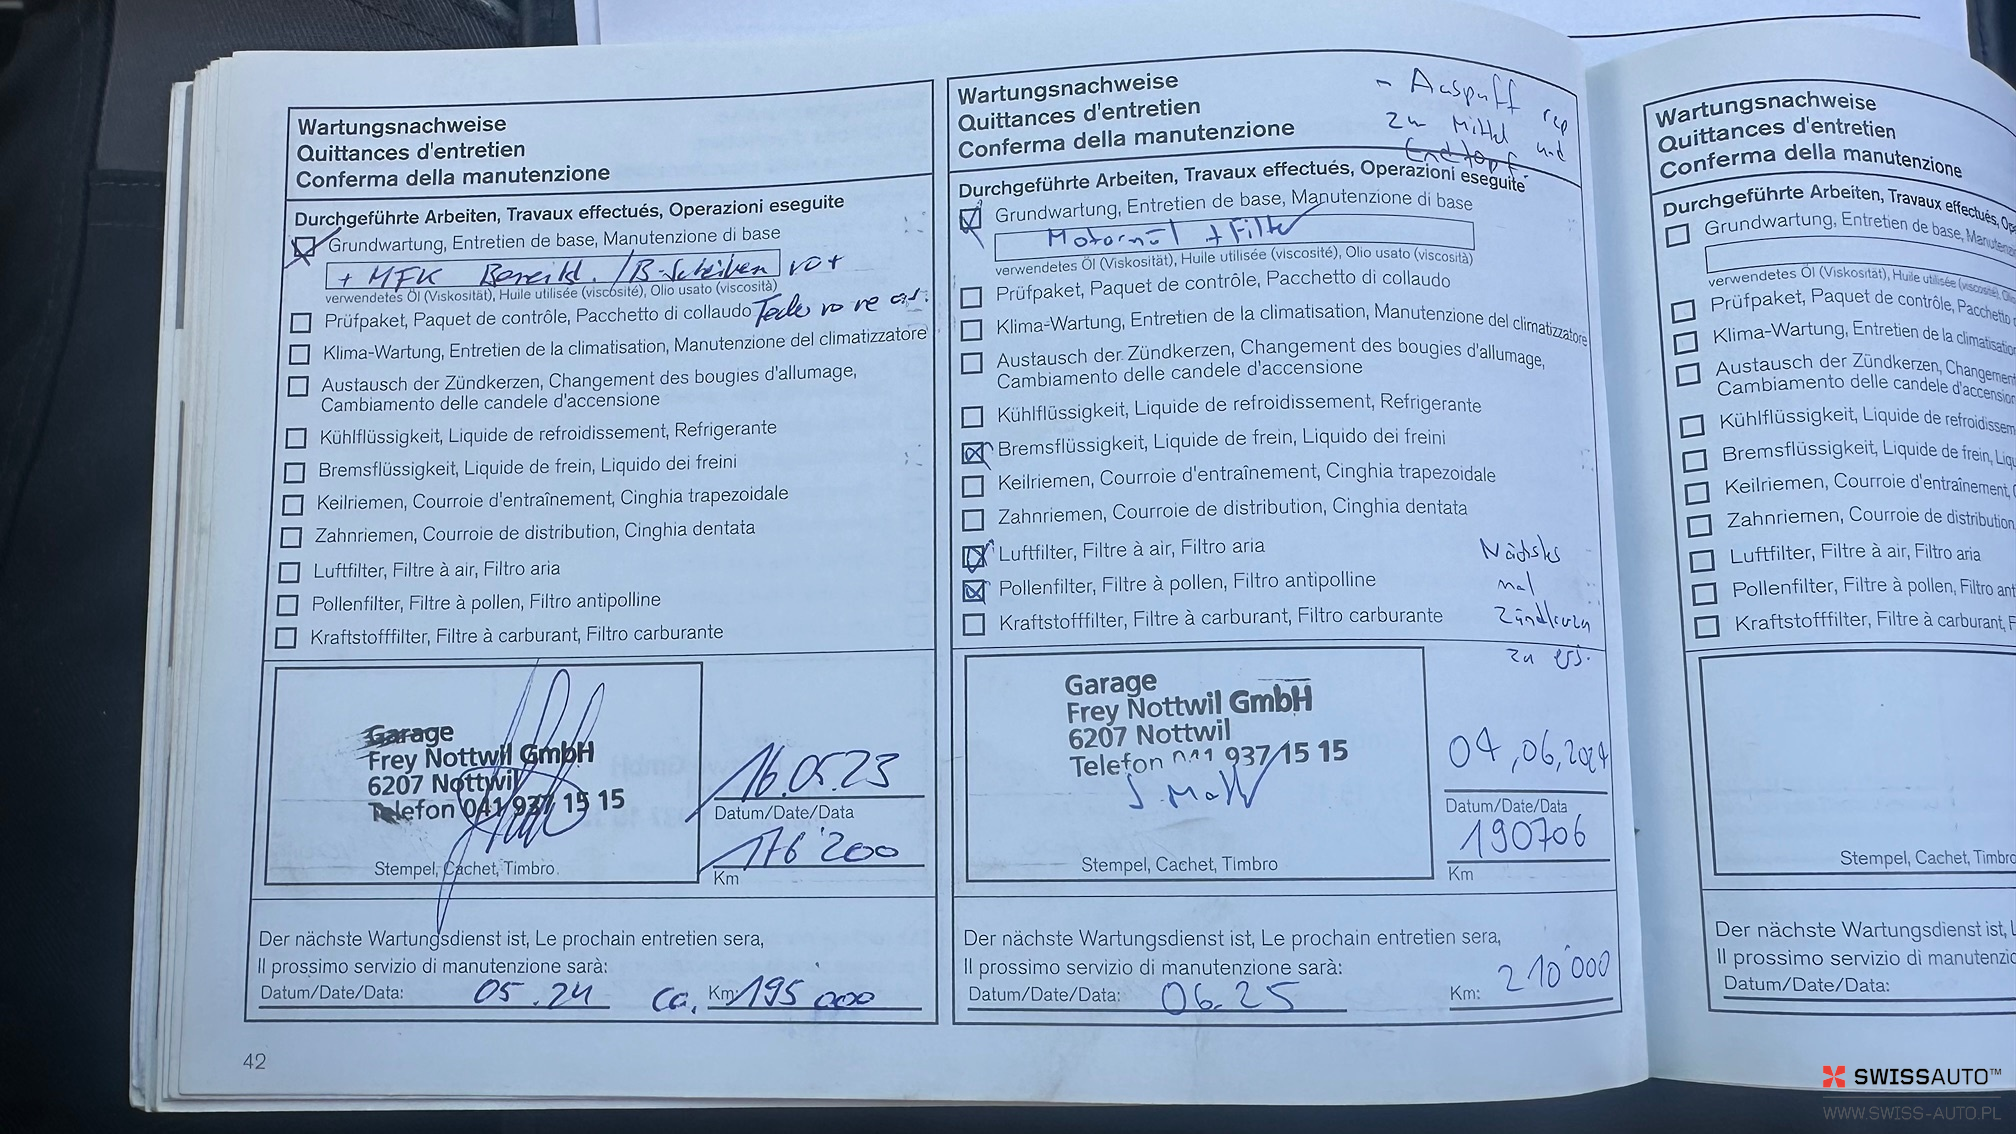 Wartungsnachweise
Quittances d'entretien
Conferma della manutenzione
Durchgeführte Arbeiten, Travaux effectués, Operazioni eseguite
Grundwartung, Entretien de base, Manutenzione di base
+ MFK Bereitst. / B-Scheiben vo +
verwendetes Öl (Viskosität), Huile utilisée (viscosité), Olio usato (viscosità)
Prüfpaket, Paquet de contrôle, Pacchetto di collaudo
Klima-Wartung, Entretien de la climatisation, Manutenzione del climatizzatore
Austausch der Zündkerzen, Changement des bougies d'allumage,
Cambiamento delle candele d'accensione
Kühlflüssigkeit, Liquide de refroidissement, Refrigerante
Bremsflüssigkeit, Liquide de frein, Liquido dei freini
Keilriemen, Courroie d'entraînement, Cinghia trapezoidale
Zahnriemen, Courroie de distribution, Cinghia dentata
Luftfilter, Filtre à air, Filtro aria
Pollenfilter, Filtre à pollen, Filtro antipolline
Kraftstofffilter, Filtre à carburant, Filtro carburante
Garage
Frey Nottwil GmbH
6207 Nottwil
Telefon 041 937 15 15
Stempel, Cachet, Timbro
16.05.23
Datum/Date/Data
176'200
Km
Der nächste Wartungsdienst ist, Le prochain entretien sera,
Il prossimo servizio di manutenzione sarà:
Datum/Date/Data: 05.24 ca. Km: 195'000
42
Wartungsnachweise
Quittances d'entretien
Conferma della manutenzione
- Auspuff rep
zw Mittel und
Endtopf.
Durchgeführte Arbeiten, Travaux effectués, Operazioni eseguite
Grundwartung, Entretien de base, Manutenzione di base
Motorenöl + Filter
verwendetes Öl (Viskosität), Huile utilisée (viscosité), Olio usato (viscosità)
Prüfpaket, Paquet de contrôle, Pacchetto di collaudo
Klima-Wartung, Entretien de la climatisation, Manutenzione del climatizzatore
Austausch der Zündkerzen, Changement des bougies d'allumage,
Cambiamento delle candele d'accensione
Kühlflüssigkeit, Liquide de refroidissement, Refrigerante
Bremsflüssigkeit, Liquide de frein, Liquido dei freini
Keilriemen, Courroie d'entraînement, Cinghia trapezoidale
Zahnriemen, Courroie de distribution, Cinghia dentata
Luftfilter, Filtre à air, Filtro aria
Pollenfilter, Filtre à pollen, Filtro antipolline
Kraftstofffilter, Filtre à carburant, Filtro carburante
Nächstes
mal
Zündkerzen
zu ers.
Garage
Frey Nottwil GmbH
6207 Nottwil
Telefon 041 937 15 15
Stempel, Cachet, Timbro
04.06.2024
Datum/Date/Data
190706
Km
Der nächste Wartungsdienst ist, Le prochain entretien sera,
Il prossimo servizio di manutenzione sarà:
Datum/Date/Data: 06.25 Km: 210'000
Wartungsnachweise
Quittances d'entretien
Conferma della manutenzione
Durchgeführte Arbeiten, Travaux effectués, Op
Grundwartung, Entretien de base, Manutenz
verwendetes Öl (Viskosität), Huile utilisée (viscosité), Olio
Prüfpaket, Paquet de contrôle, Pacchetto
Klima-Wartung, Entretien de la climatisation
Austausch der Zündkerzen, Changement
Cambiamento delle candele d'accension
Kühlflüssigkeit, Liquide de refroidissem
Bremsflüssigkeit, Liquide de frein, Liqu
Keilriemen, Courroie d'entraînement, C
Zahnriemen, Courroie de distribution,
Luftfilter, Filtre à air, Filtro aria
Pollenfilter, Filtre à pollen, Filtro ant
Kraftstofffilter, Filtre à carburant, F
Stempel, Cachet, Timbro
Der nächste Wartungsdienst ist, L
Il prossimo servizio di manutenzio
Datum/Date/Data:
SWISSAUTO™
WWW.SWISS-AUTO.PL